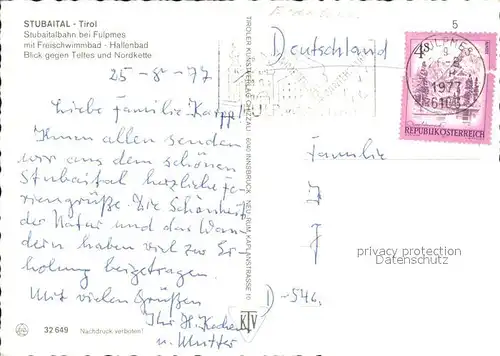 STUBAITAL - Tirol
Stubaitalbahn bei Fulpmes
mit Freischwimmbad - Hallenbad
Blick gegen Telfes und Nordkette
5
Deutschland
4s
FULPMES
1977
REPUBLIK ÖSTERREICH
25-8-77
Liebe Familie
Ihnen allen senden
wir aus dem schönen
Stubaital herzliche Fe-
riengrüße. Die Schönheit
der Natur und das Wan-
dern haben viel zur Er-
holung beigetragen.
Mit vielen Grüßen
Ihr H.
u. Mutter
TIROLER KUNSTVERLAG CHIZZALI 6040 INNSBRUCK - NEU-RUM KAPLANSTRASSE 10
KTV
Familie
D-546
privacy protection
Datenschutz
32 649 Nachdruck verboten!